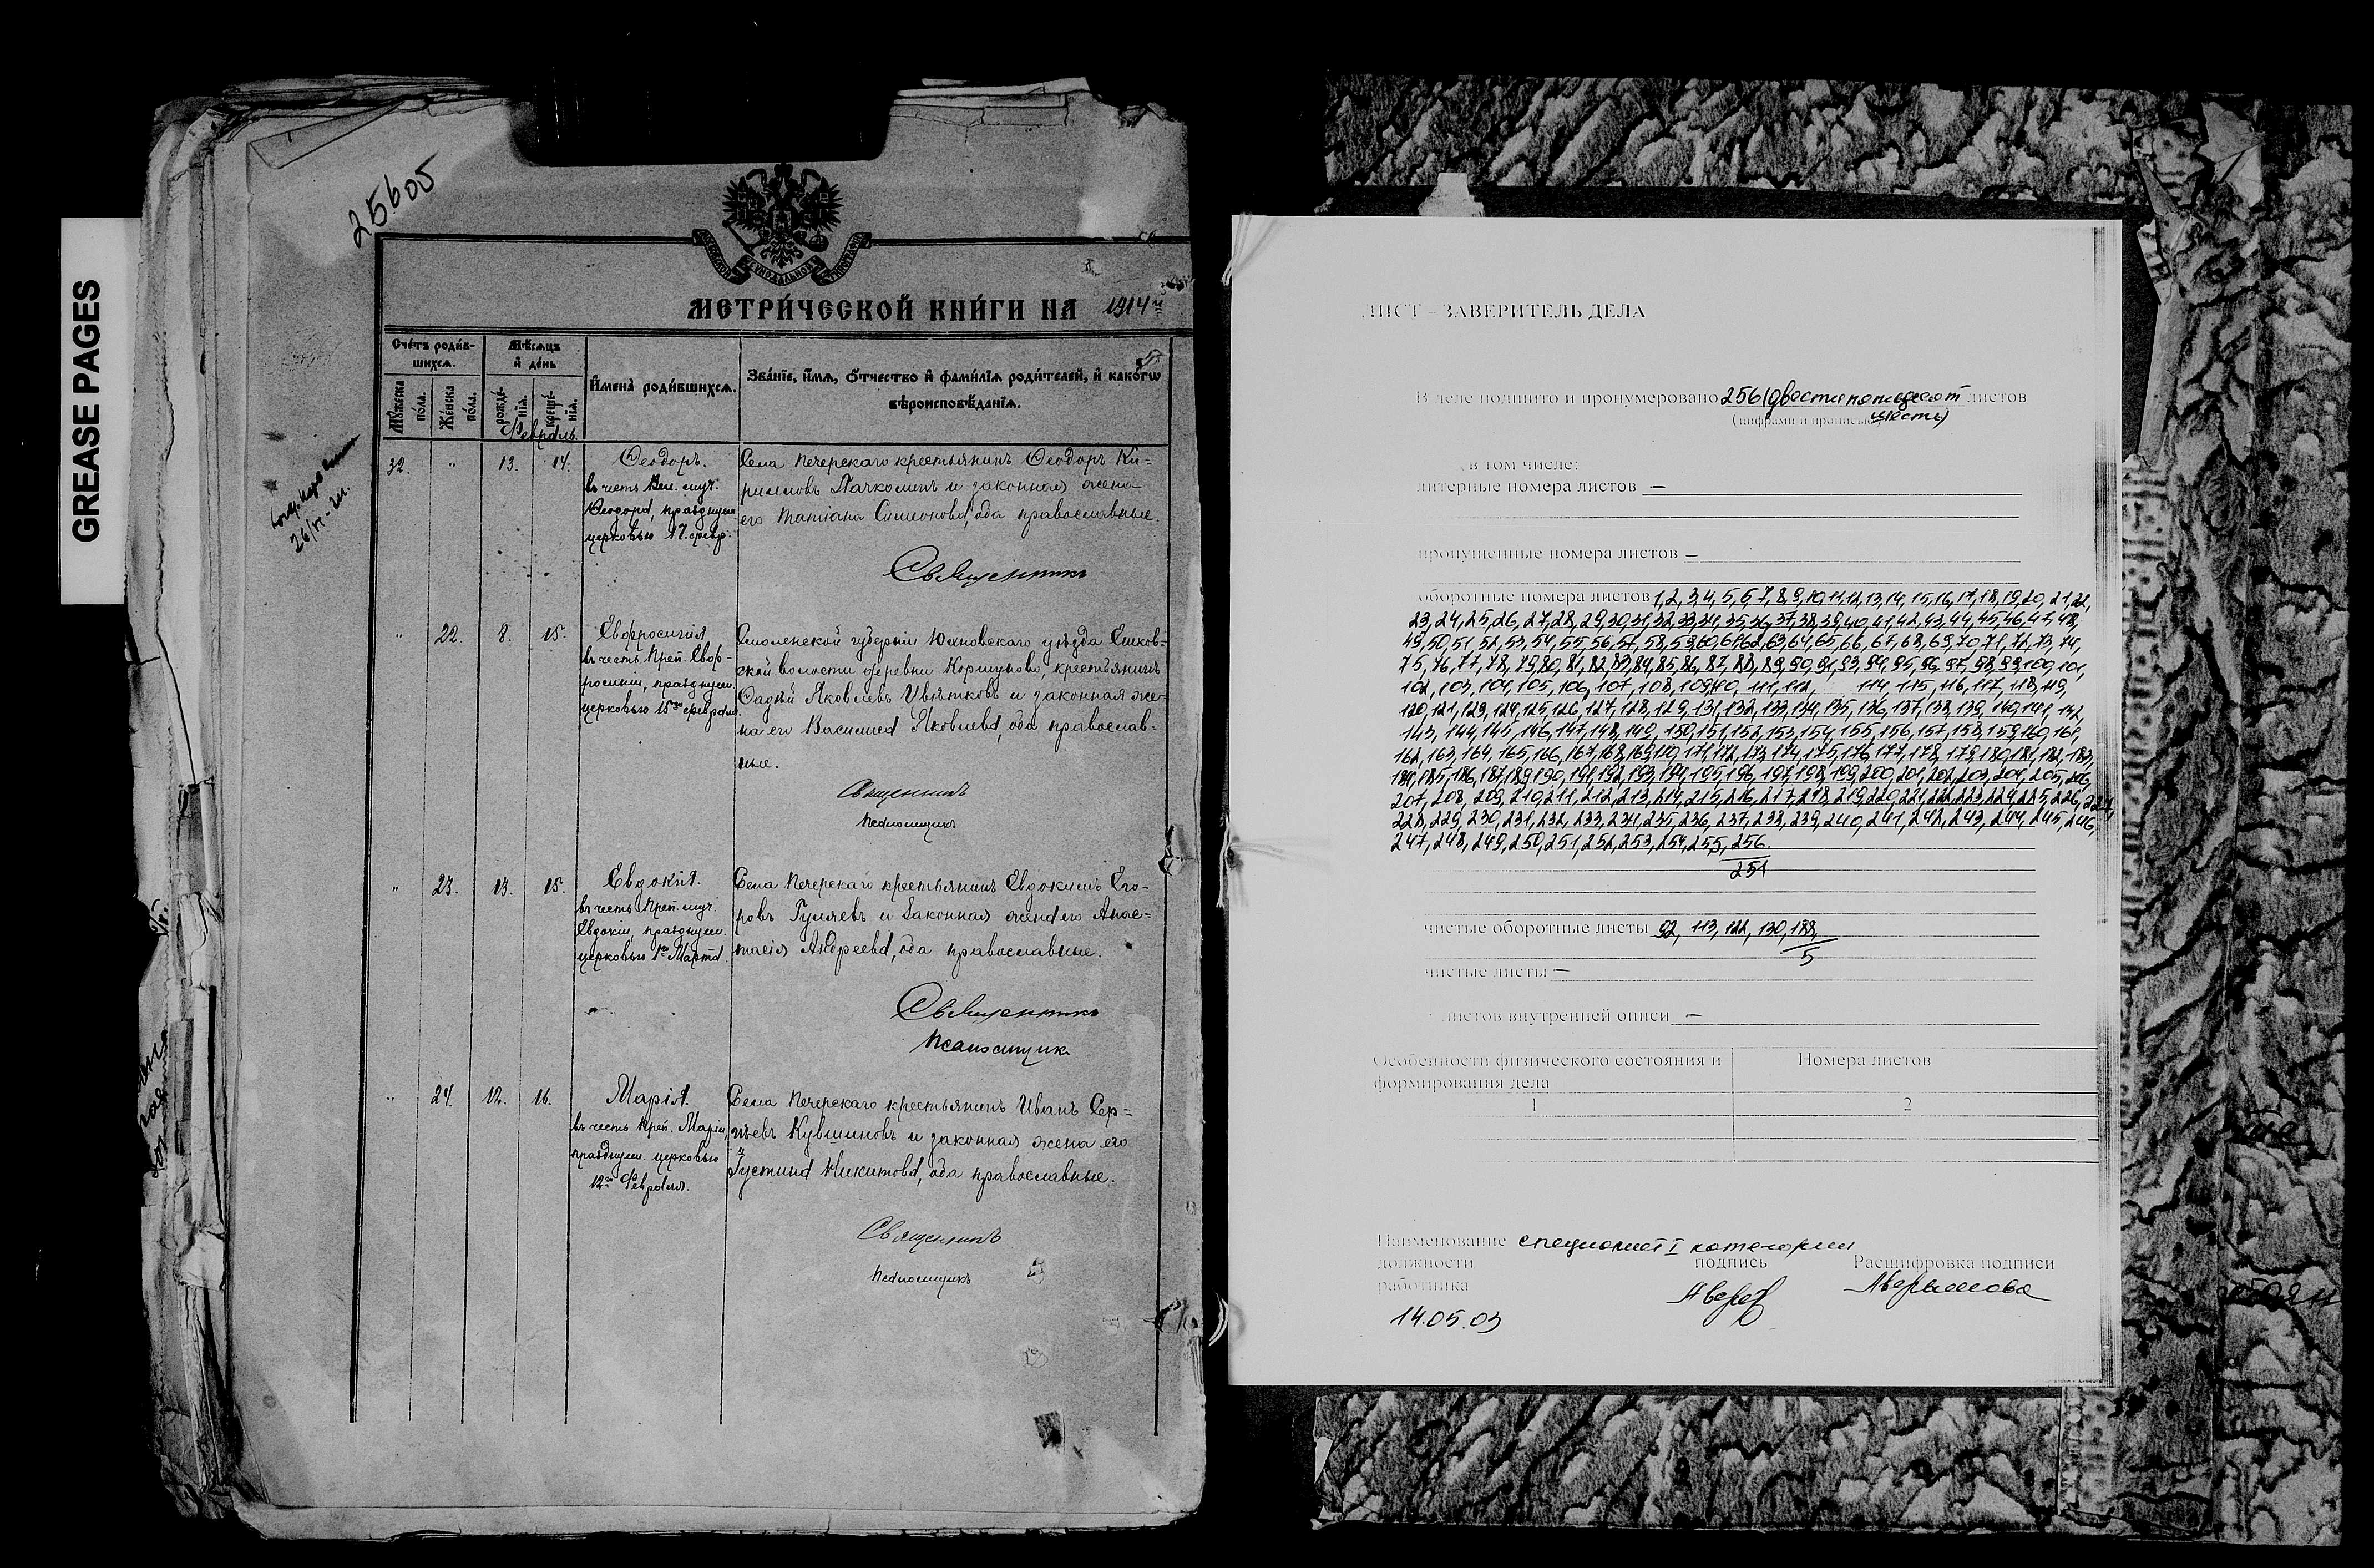 GREASE PAGES
256об
МЕТРИ́ЧЕСКОЙ КНИ́ГИ НА 1914й
Сче́тъ роди́в-
шихсѧ.
Мѣ́сѧцъ
и҆ де́нь
И҆мена̀ роди́вшихсѧ.
Зва́нїе, и҆́мѧ, ѻ҆́тчество и҆ фами́лїѧ роди́телей, и҆ како́гѡ
вѣроисповѣ́данїѧ.
Мꙋ́жеска по́ла.
Же́нска по́ла.
рожде́нїѧ.
креще́нїѧ.
Февраль
32. " 13. 14.
Ѳеодоръ.
въ честь Вел. муч.
Ѳеодора, празднуем.
церковью 17. февр.
Села Печерскаго крестьянинъ Ѳеодоръ Ки-
рилловъ Пачколинъ и законная жена
его Татіана Симеонова, оба православные.
Священникъ
" 22. 8. 15.
Евфросинія
въ честь Преп. Евф-
росиніи, празднуем.
церковью 15го февраля.
Смоленской губерніи Юхновскаго уѣзда Слков-
ской волости деревни Коршуново, крестьянинъ
Ѳаддѣй Яковлевъ Цвѣтковъ и законная же-
на его Васильева Яковлева, оба православ-
ные.
Священникъ
Псаломщикъ
" 23. 13. 15.
Евдокія.
въ честь Преп. муч.
Евдокіи, празднуем.
церковью 1го Марта.
Села Печерскаго крестьянинъ Евдокимъ Его-
ровъ Гуляевъ и законная жена его Анас-
тасія Андреева, оба православные.
Священникъ
Псаломщик
" 24. 12. 16.
Марія.
въ честь Преп. Маріи,
празднуем. церковью
12го Февраля.
Села Печерскаго крестьянинъ Иванъ Сер-
гѣевъ Кувшиновъ и законная жена его
Іустина Никитова, оба православные.
Священникъ
Псаломщикъ
ЛИСТ - ЗАВЕРИТЕЛЬ ДЕЛА
В деле подшито и пронумеровано 256 (двести пятьдесят листов
(цифрами и прописью) шесть)
в том числе:
литерные номера листов —
пропущенные номера листов —
оборотные номера листов 1, 2, 3, 4, 5, 6, 7, 8, 9, 10, 11, 12, 13, 14, 15, 16, 17, 18, 19, 20, 21, 22,
23, 24, 25, 26, 27, 28, 29, 30, 31, 32, 33, 34, 35, 36, 37, 38, 39, 40, 41, 42, 43, 44, 45, 46, 47, 48,
49, 50, 51, 52, 53, 54, 55, 56, 57, 58, 59, 60, 61, 62, 63, 64, 65, 66, 67, 68, 69, 70, 71, 72, 73, 74,
75, 76, 77, 78, 79, 80, 81, 82, 83, 84, 85, 86, 87, 88, 89, 90, 91, 93, 94, 95, 96, 97, 98, 99, 100, 101,
102, 103, 104, 105, 106, 107, 108, 109, 110, 111, 112, 114, 115, 116, 117, 118, 119,
120, 121, 123, 124, 125, 126, 127, 128, 129, 131, 132, 133, 134, 135, 136, 137, 138, 139, 140, 141, 142,
143, 144, 145, 146, 147, 148, 149, 150, 151, 152, 153, 154, 155, 156, 157, 158, 159, 160, 161,
162, 163, 164, 165, 166, 167, 168, 169, 170, 171, 172, 173, 174, 175, 176, 177, 178, 179, 180, 181, 182, 183,
184, 185, 186, 187, 189, 190, 191, 192, 193, 194, 195, 196, 197, 198, 199, 200, 201, 202, 203, 204, 205, 206,
207, 208, 209, 210, 211, 212, 213, 214, 215, 216, 217, 218, 219, 220, 221, 222, 223, 224, 225, 226, 227,
228, 229, 230, 231, 232, 233, 234, 235, 236, 237, 238, 239, 240, 241, 242, 243, 244, 245, 246,
247, 248, 249, 250, 251, 252, 253, 254, 255, 256.
251
чистые оборотные листы 92, 113, 122, 130, 188,
5
чистые листы —
листов внутренней описи —
Особенности физического состояния и
формирования дела
Номера листов
1 2
Наименование специалист I категории
должности подпись Расшифровка подписи
работника
14.05.03